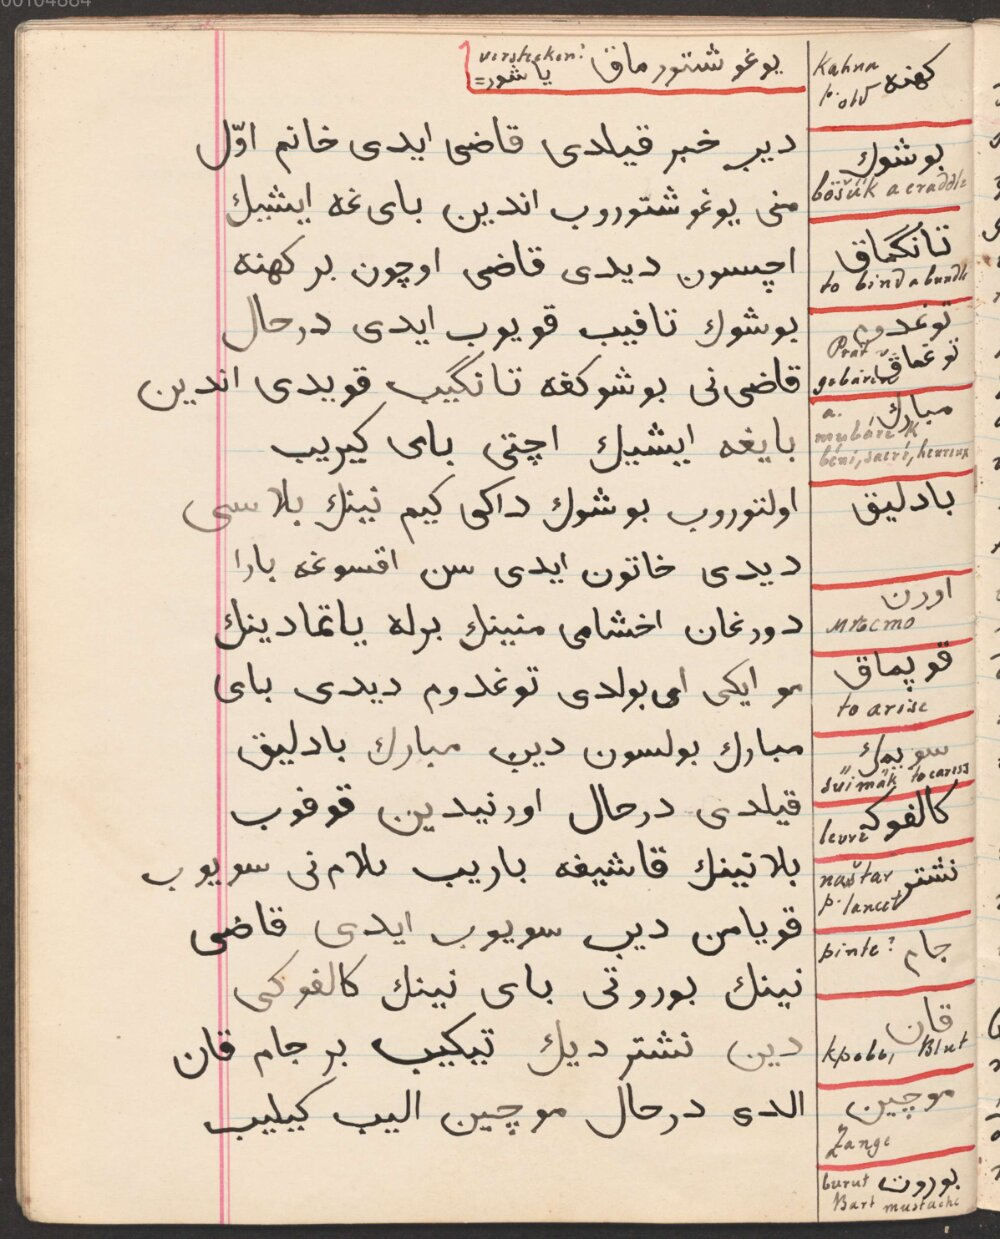 00104884
يوغوشتورماق verstecken?
ياشور=
ديب خبر قيلدى قاضى ايدى خانم اوّل
منى يوغوشتوروب اندين باى غه ايشيك
اچسون ديدى قاضى اوچون بر كهنه
بوشوك تافيب قويوب ايدى درحال
قاضى نى بوشوكغه تانگيب قويدى اندين
بايغه ايشيك اچتى باى كيريب
اولتوروب بوشوك داكى كيم نينك بلاسى
ديدى خاتون ايدى سن اقسوغه بارا
دورغان اخشامى منينك برله ياتمادينك
مو ايكى اى بولدى توغدوم ديدى باى
مبارك بولسون دين مبارك بادليق
قيلدى درحال اورنيدين قوفوب
بلانينك قاشيغه باريب بلام نى سويوب
قويامن ديب سويوب ايدى قاضى
نينك بوروتى باى نينك كالفوكى
دين نشتر ديك تيكيب بر جام قان
الدى درحال موچين اليب كيليب
كهنه kahna
p. old
بوشوك
böšük a craddle
تانگماق
to bind a bundle
توغدوم
Prät v
توغماق
gebären
مبارك a.
mubárek
béni, sacré, heureux
بادليق
اورن
мѣсто
قوپماق
to arise
سويمك
süimäk to caress
كالفوك
levre
نشتر naštar
p. lancet
جام pinte?
قان
кровь, Blut
موچين
Zange
بوروت burut
Bart mustache